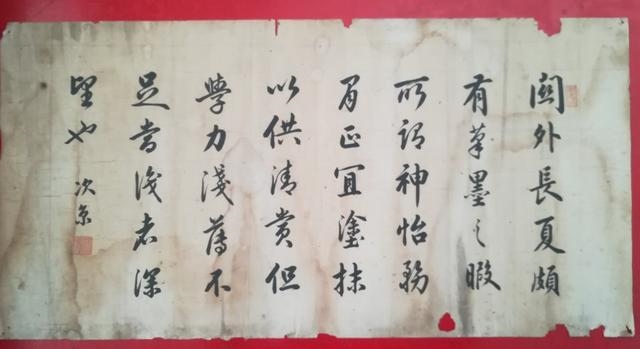 關外長夏頗
有筆墨之暇
所謂神怡務
閒正宜塗抹
以供清賞但
學力淺薄不
足當識者深
望也 次京